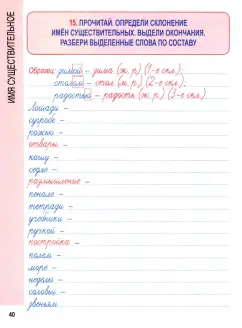 ИМЯ СУЩЕСТВИТЕЛЬНОЕ
15. ПРОЧИТАЙ. ОПРЕДЕЛИ СКЛОНЕНИЕ
ИМЁН СУЩЕСТВИТЕЛЬНЫХ. ВЫДЕЛИ ОКОНЧАНИЯ.
РАЗБЕРИ ВЫДЕЛЕННЫЕ СЛОВА ПО СОСТАВУ
Образец: зимой – зима (ж. р.) (1-е скл.);
столом – стол (м. р.) (2-е скл.);
радостью – радость (ж. р.) (3-е скл.)
Лошади –
сугробе –
рожью –
отвары –
кашу –
седле –
размышление –
пенале –
тетради –
учебники –
ручкой –
постройка –
полем –
море –
неделю –
соловьи –
звеньям
40